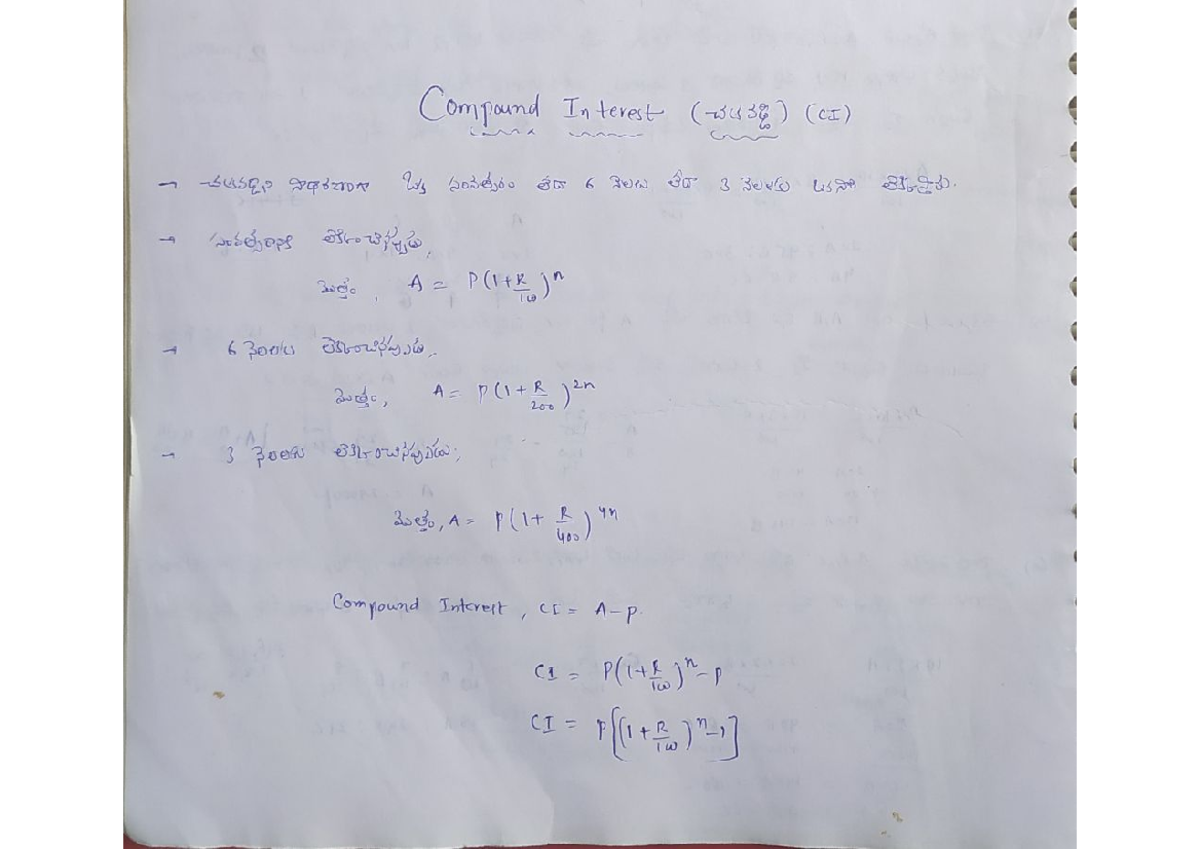 Compound Interest (చక్రవడ్డి) (CI)
→ చక్రవడ్డిని సాధారణంగా ఒక్క సంవత్సరం లేదా 6 నెలలు లేదా 3 నెలలకు ఒకసారి లెక్కిస్తారు.
→ సంవత్సరానికి లెక్కించినప్పుడు,
మొత్తం, A = P(1+R/100)^n
→ 6 నెలలకు లెక్కించినప్పుడు,
మొత్తం, A = P(1+R/200)^2n
→ 3 నెలలకు లెక్కించినప్పుడు;
మొత్తం, A = P(1+R/400)^4n
Compound Interest, CI = A-P.
CI = P(1+R/100)^n-P
CI = P[(1+R/100)^n-1]